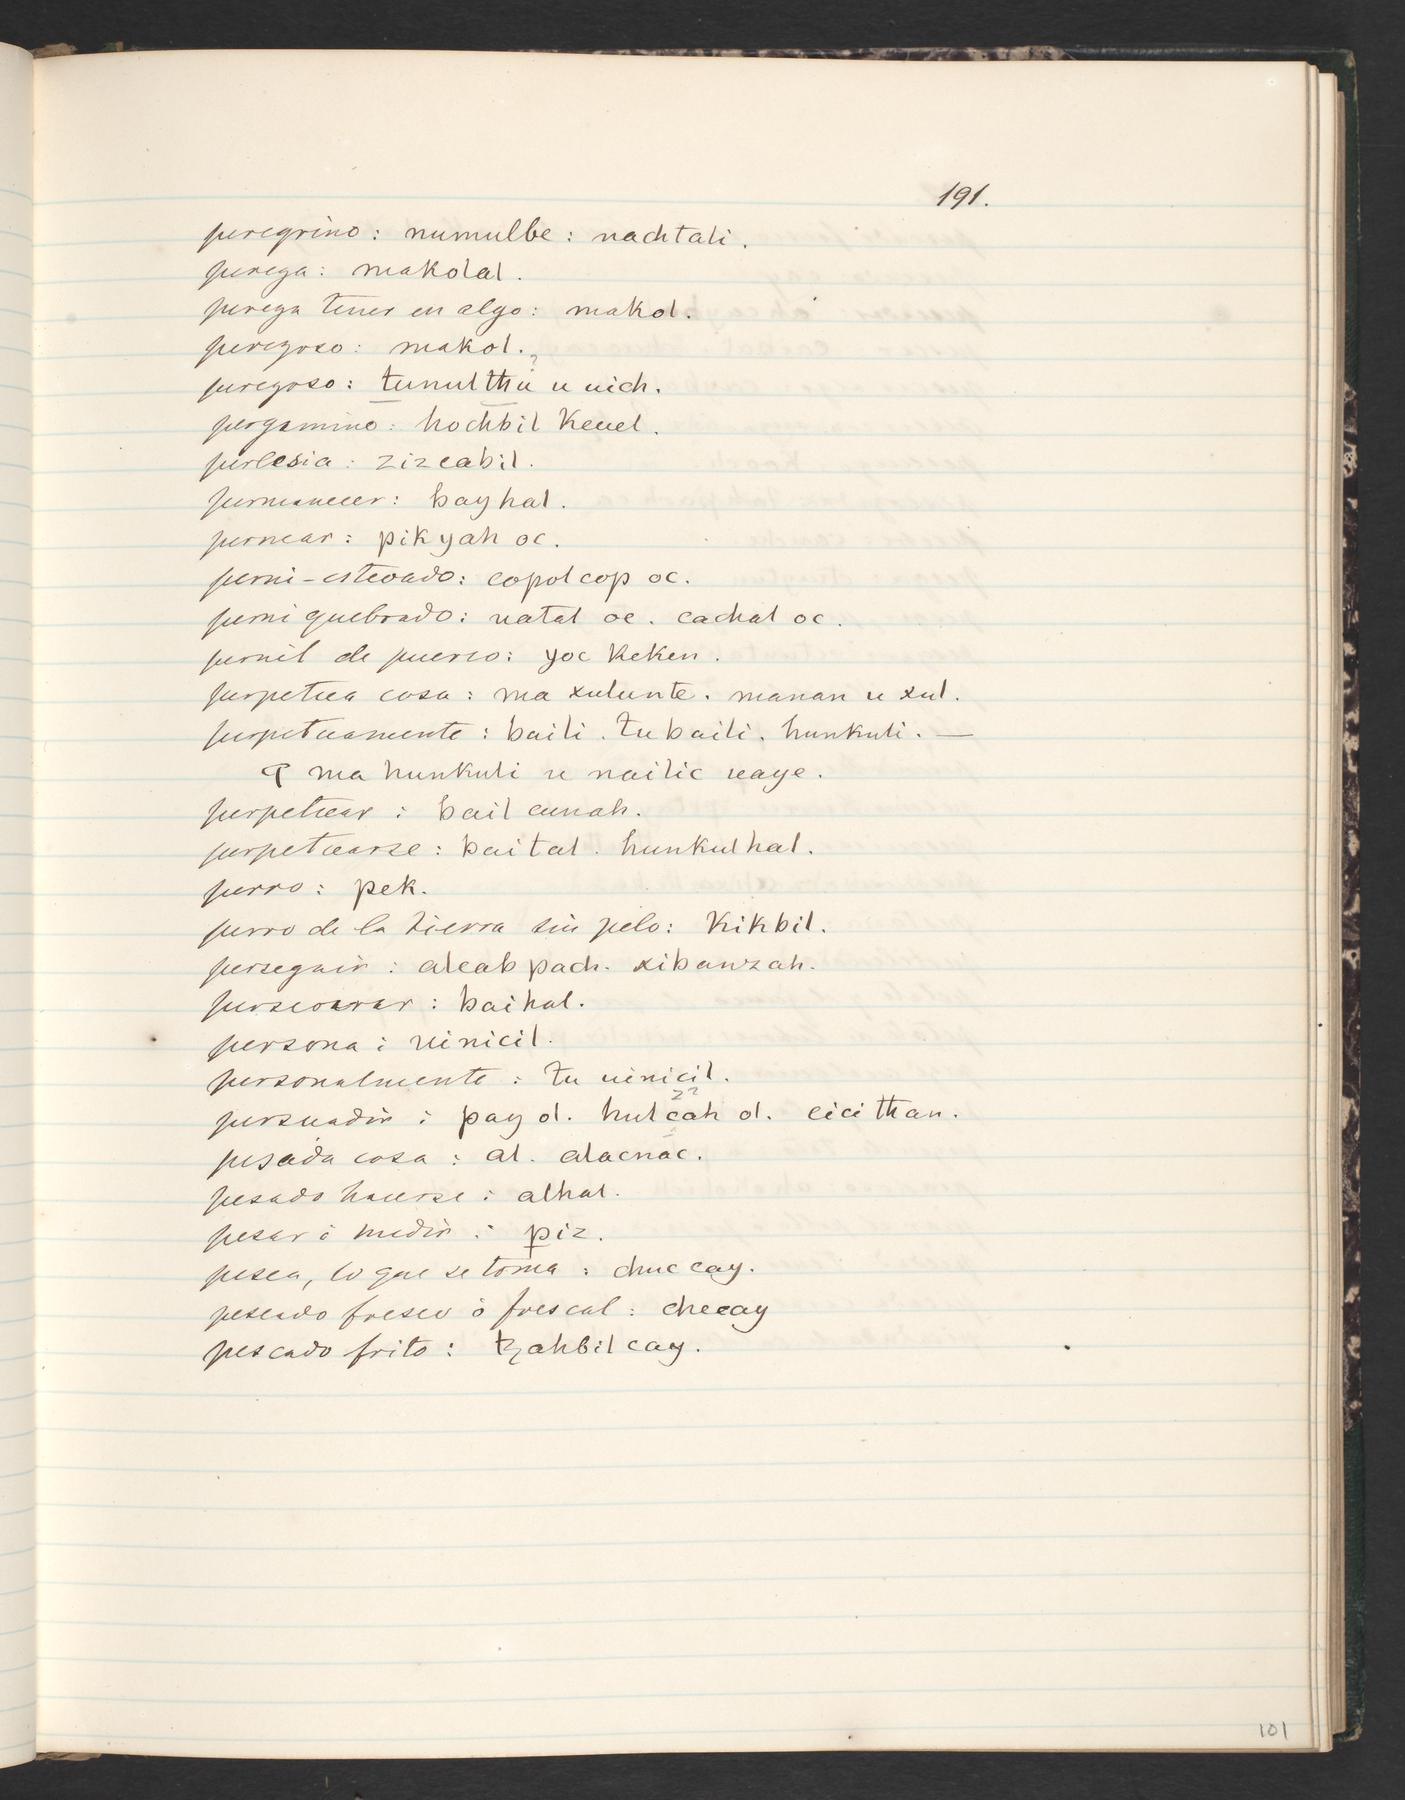 191.
peregrino: numulbe: nachtali.
pereza: makolal.
pereza tener en algo: makol.
perezoso: makol. ?
perezoso: tunulthu u uich.
pergamino: hochbil keuel.
perlesia: zizcabil.
permanecer: bayhal.
pernear: pikyah oc.
perni-estevado: copolcop oc.
perni quebrado: uatal oc. cachal oc.
pernil de puerco: yoc keken.
perpetua cosa: ma xulunte. manan u xul.
perpetuamente: baili. tu baili. hunkuli. —
¶ ma hunkuli u nailic uaye.
perpetuar: bail cunah.
perpetuarse: baital. hunkulhal.
perro: pek.
perro de la tierra sin pelo: kikbil.
perseguir: alcab pach. xibanzah.
perseverar: baihal.
persona: uinicil.
personalmente: tu uinicil.
z?
persuadir: pay ol. hulcah ol. cici than.
pesada cosa: al. alacnac.
pesado hacerse: alhal.
pesar ò medir: piz.
pesca, lo que se toma: chuc cay.
pescado fresco ò frescal: checay
pescado frito: tzahbil cay.
101